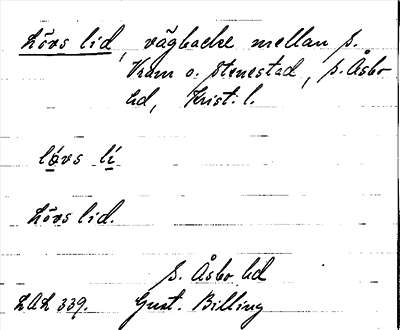 Lövs lid, vägbacke mellan s.
Vram o. Stenestad, s. Åsbo
hd, Krist. l.
lövs lí
Lövs lid.
s. Åsbo hd
LAL 339. Gust. Billing